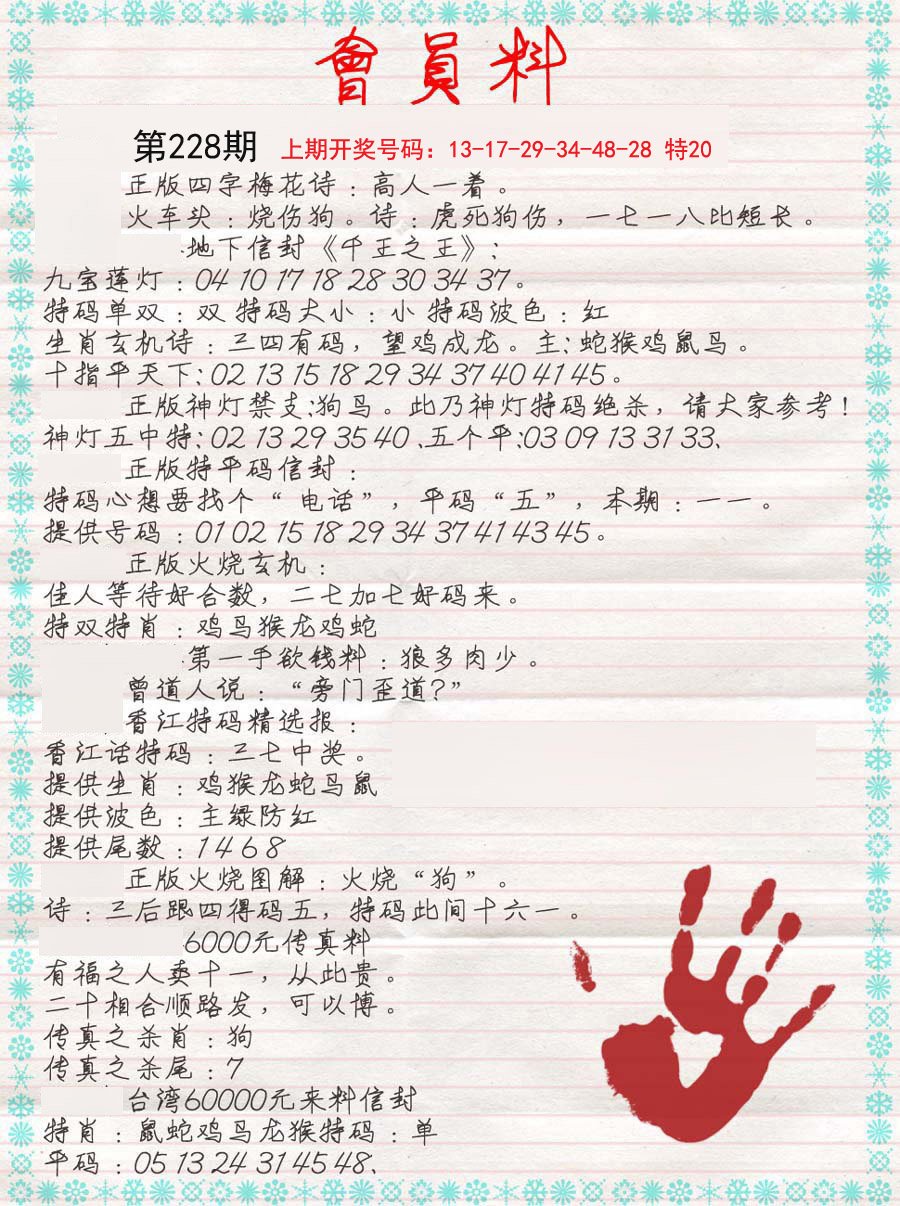 會員料
第228期 上期开奖号码：13-17-29-34-48-28 特20
正版四字梅花诗：高人一着。
火车头：烧伤狗。诗：虎死狗伤，一七一八比短长。
地下信封《千王之王》：
九宝莲灯：04 10 17 18 28 30 34 37。
特码单双：双 特码大小：小 特码波色：红
生肖玄机诗：三四有码，望鸡成龙。主：蛇猴鸡鼠鸟。
十指平天下：02 13 15 18 29 34 37 40 41 45。
正版神灯禁支：狗鸟。此乃神灯特码绝杀，请大家参考！
神灯五中特：02 13 29 35 40、五个平：03 09 13 31 33、
正版特平码信封：
特码心想要找个“电话”，平码“五”，本期：一一。
提供号码：01 02 15 18 29 34 37 41 43 45。
正版火烧玄机：
佳人等待好合数，二七加七好码来。
特双特肖：鸡鸟猴龙鸡蛇
第一手欲钱料：狼多肉少。
曾道人说：“旁门歪道？”
香江特码精选报：
香江话特码：三七中奖。
提供生肖：鸡猴龙蛇鸟鼠
提供波色：主绿防红
提供尾数：1 4 6 8
正版火烧图解：火烧“狗”。
诗：三后跟四得码五，特码此间十六一。
6000元传真料
有福之人卖十一，从此贵。
二十相合顺路发，可以博。
传真之杀肖：狗
传真之杀尾：7
台湾60000元来料信封
特肖：鼠蛇鸡鸟龙猴特码：单
平码：05 13 24 31 45 48、